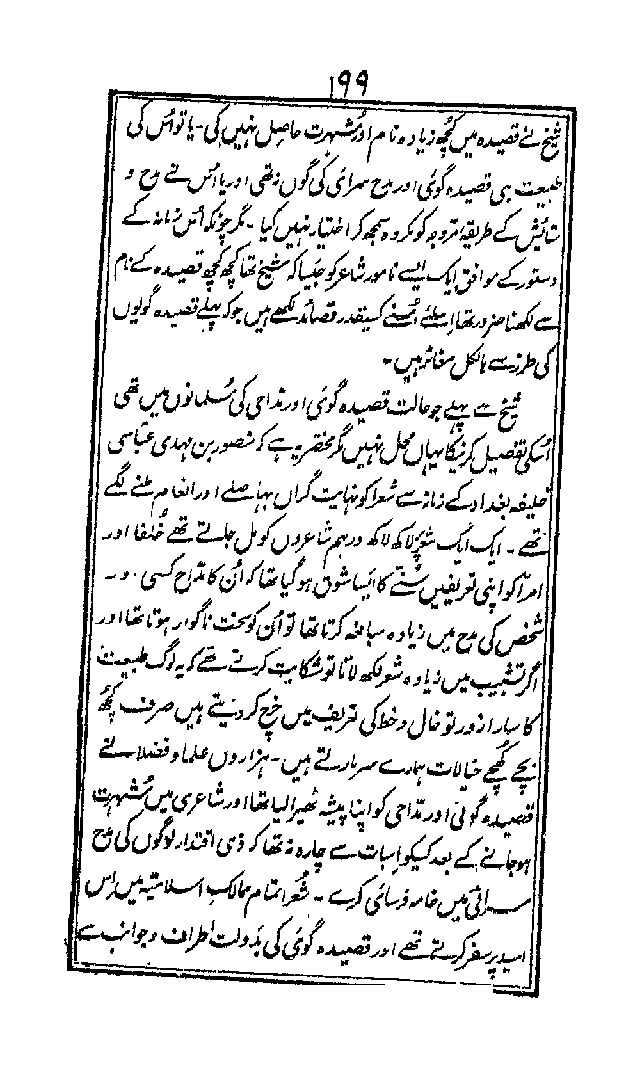 ۱۹۹
شیخ نے قصیدہ میں کچھ زیادہ نام اور شہرت حاصل نہیں کی ۔ یا تو اُس کی
طبیعت ہی قصیدہ گوئی اور مدح سرائی کی گوں نتھی اور یا اُس نے مدح و
ستایش کے طریقۂ مروجہ کو مکروہ سمجھ کر اختیار نہیں کیا ۔ مگر چونکہ اُس زمانہ کے
دستور کے موافق ایک ایسے نامور شاعر کو جیسا کہ شیخ تھا کچھ کچھ قصیدہ کے نام
سے لکھنا ضرور تھا اسلئے اُسنے کسیقدر قصائد لکھے ہیں جو کہ پہلے قصیدہ گویوں
کی طرز سے بالکل مغائر ہیں ۔
شیخ سے پہلے جو حالت قصیدہ گوئی اور مداحی کی مُسلمانوں میں تھی
اُسکی تفصیل کرنیکا یہاں محل نہیں مگر مختصر یہ ہے کہ منصور بن مہدی عباسی
خلیفہ بغداد کے زمانہ سے شعرا کو نہایت گراں بہا صلے اور انعام ملنے لگے
تھے ۔ ایک ایک شعر پر لاکھ لاکھ درہم شاعروں کو مل جاتے تھے خُلفا اور
امرا کو اپنی تعریفیں سُننے کا ایسا شوق ہو گیا تھا کہ اُن کا مداح کسی دو۔
شخص کی مدح میں زیادہ مبالغہ کرتا تھا تو اُن کو سخت ناگوار ہوتا تھا اور
اگر تشبیب میں زیادہ شعر لکھ لاتا تو شکایت کرتے تھے کہ یہ لوگ طبیعت
کا سارا زور تو خال و خط کی تعریف میں خرچ کر دیتے ہیں صرف کچھ
بچے کھچے خیالات ہمارے سر مارتے ہیں ۔ ہزاروں علما و فضلا نے
قصیدہ گوئی اور مداحی کو اپنا پیشہ ٹھیرا لیا تھا اور شاعری میں مُشہرت
ہو جانے کے بعد کسیکو اسبات سے چارہ نہ تھا کہ ذی اقتدار لوگوں کی مدح
سرائی میں خامہ فرسائی کرے ۔ شُعرا تمام ممالک اسلامیہ میں اِس
امید پر سفر کرتے تھے اور قصیدہ گوئی کی بدولت اطراف و جوانب سے